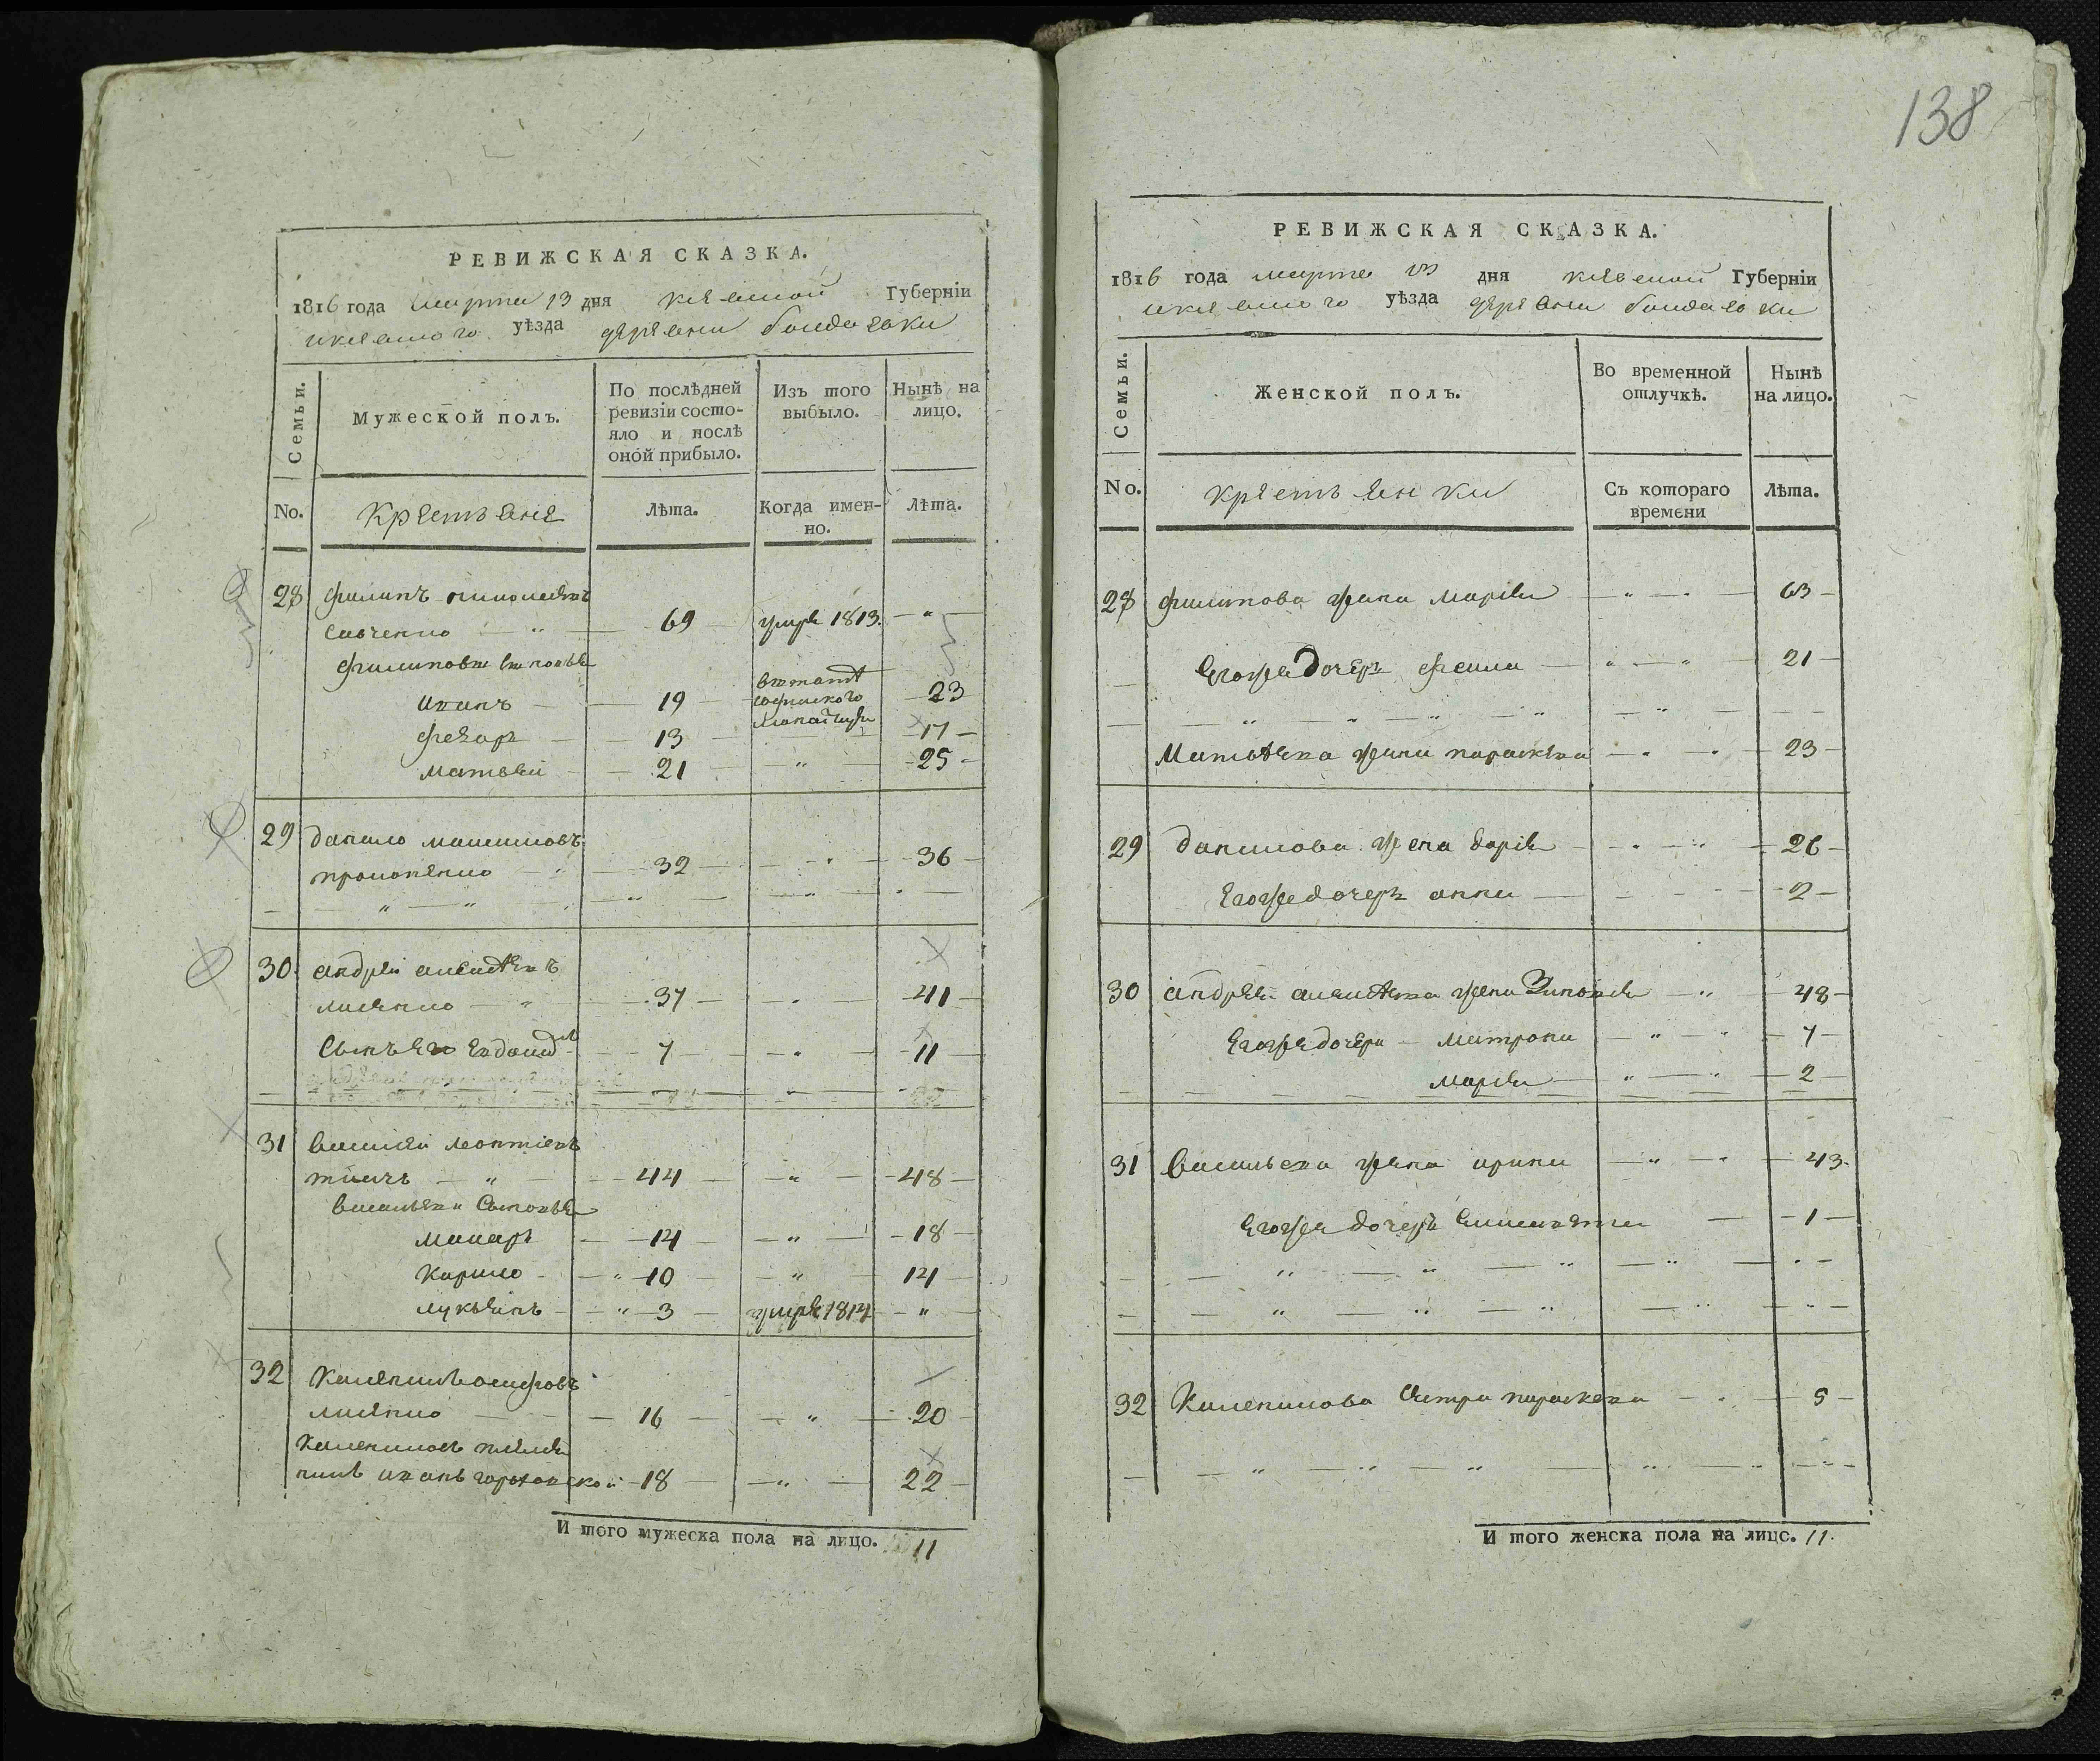 РЕВИЖСКАЯ СКАЗКА.
1816 года марта 13 дня киевской Губерніи
уѣзда деревни бондаровки
Семьи.
Мужеской полъ.
По послѣдней ревизіи состояло и послѣ оной прибыло.
Изъ того выбыло.
Нынѣ на лицо.
No.
Крестьяне
Лѣта.
Когда именно.
Лѣта.
28 филипъ
савченко — 69 — умре 1813. — " —
филиповы сыновья
иванъ — 19 — — 23
федоръ — 13 — — 17 —
матвей — 21 — " — 25 -
29 данило
— 32 — " — 36 —
30. андрей алексѣевъ
лисенко — 37 — " — 41 —
Сынъ его — 7 — " — 11 —
31 василей леонтіевъ
— " — 44 — " — 48 —
васильевы Сыновья
макаръ — 14 — " — 18 —
кирило — " 10 — " — 14 —
лукьянъ — " 3 — умре 1814 — "
32 осиповъ
лисенко — 16 — " — 20 —
племян
никъ иванъ - 18 — " — 22 —
И того мужеска пола на лицо. 11
138
РЕВИЖСКАЯ СКАЗКА.
1816 года марта 13 дня киевской Губерніи
уѣзда деревни бондаровки
Семьи.
Женской полъ.
Во временной отлучкѣ.
Нынѣ на лицо.
No.
крестьянки
Съ котораго времени
Лѣта.
28 филипова жена марія — " — 63 —
Егоже дочерь — " — " — 21 —
Матвѣева жена параскева — " — 23 —
29 данилова жена дарія — " — " — 26 —
Егоже дочерь анна — 2 —
30 андрея алексѣева жена Зиновія — " — 48 —
Егоже дочери — матрона — " — " — 7 —
марія — " — " — 2 —
31 васильева жена ирина — " — " — 43.
Егоже дочерь Елисавета — 1 —
32 сестра параскева — " — 5 —
И того женска пола на лицо. 11.